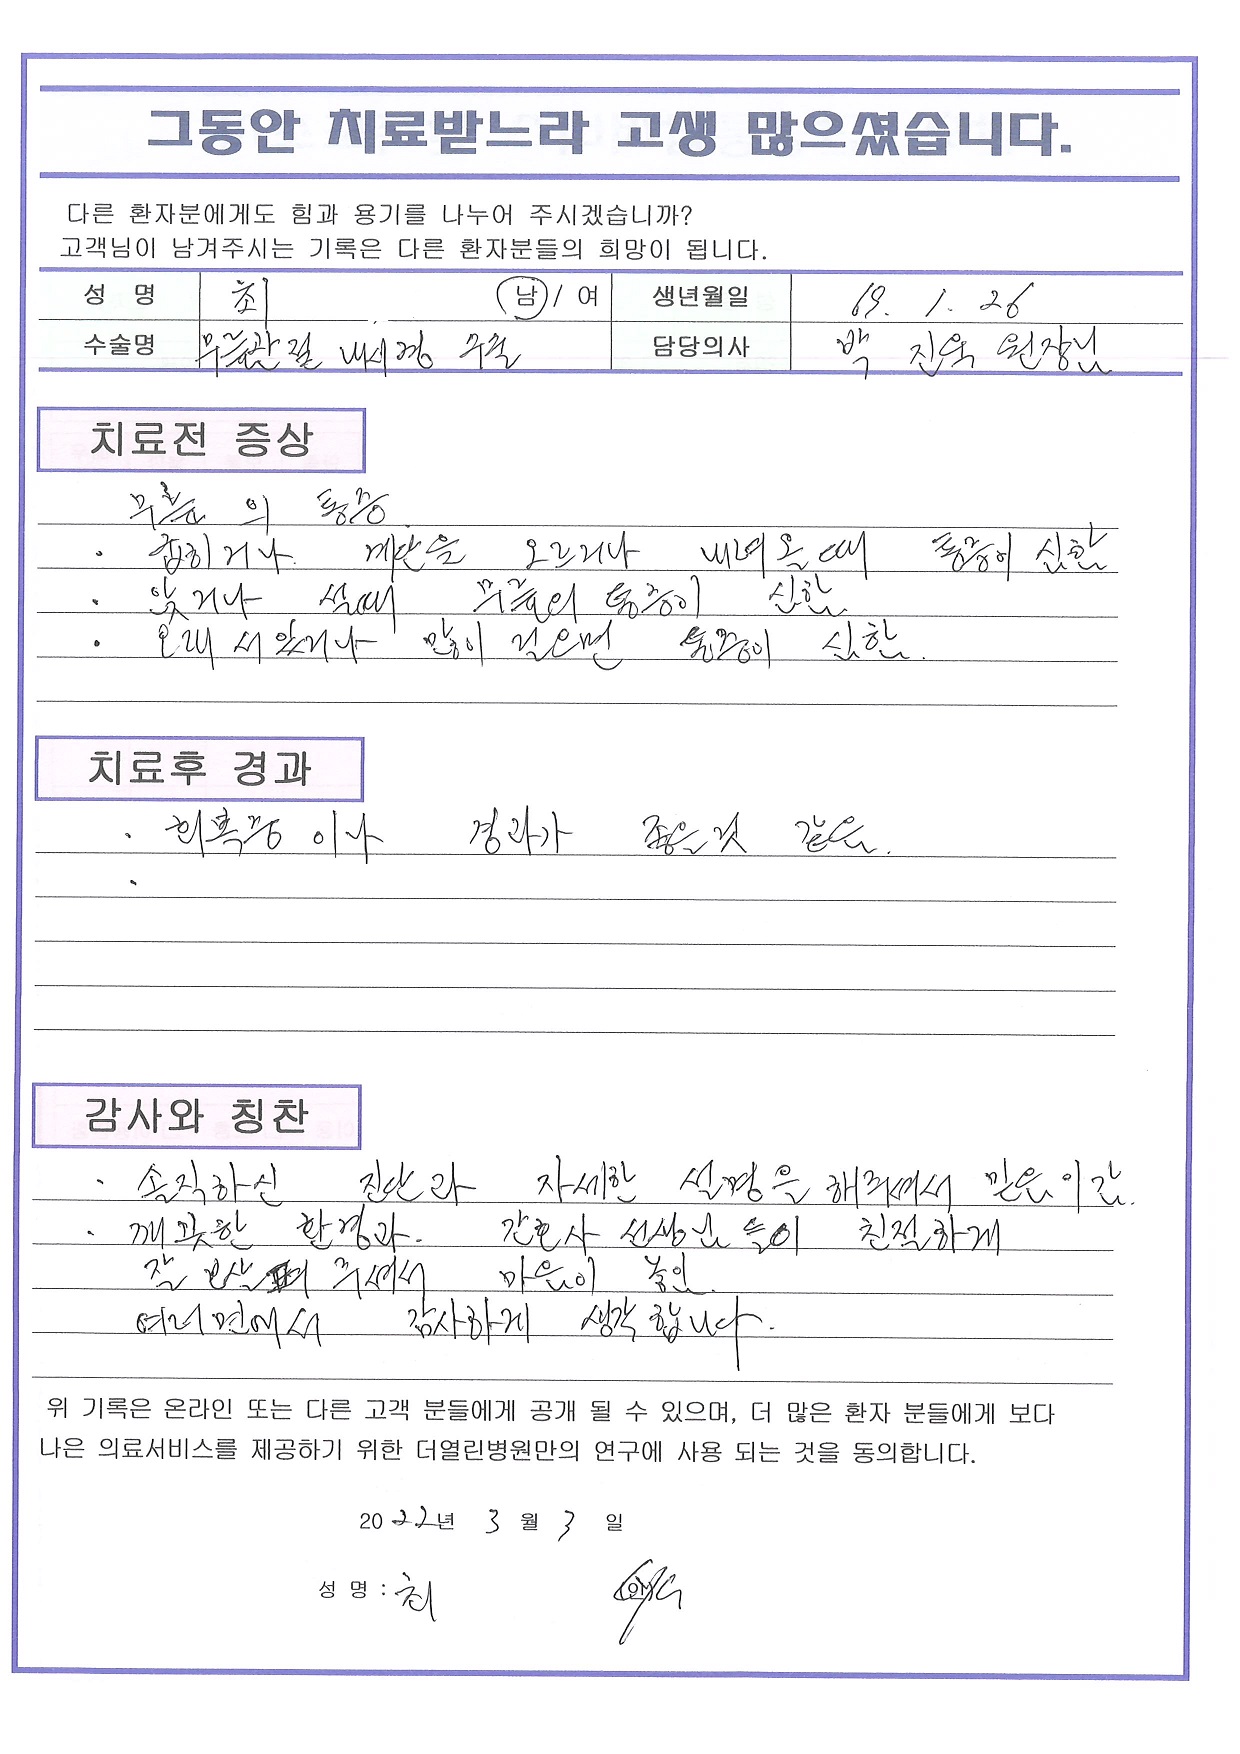 그동안 치료받느라 고생 많으셨습니다.
다른 환자분에게도 힘과 용기를 나누어 주시겠습니까?
고객님이 남겨주시는 기록은 다른 환자분들의 희망이 됩니다.
성 명 최 남 / 여 생년월일 69. 1. 26
수술명 무릎관절 내시경 수술 담당의사 백 진욱 원장님
치료전 증상
무릎의 통증.
· 굽히거나 계단을 오르거나 내려올때 통증이 심함
· 앉거나 설때 무릎의 통증이 심함
· 오래 서있거나 많이 걸으면 통증이 심함.
치료후 경과
· 회복중이나 경과가 좋은것 같음.
·
감사와 칭찬
· 솔직하신 진단과 자세한 설명을 해주셔서 믿음이 감.
· 깨끗한 환경과. 간호사 선생님들이 친절하게
잘 보살펴 주셔서 마음이 놓임.
여러면에서 감사하게 생각합니다.
위 기록은 온라인 또는 다른 고객 분들에게 공개 될 수 있으며, 더 많은 환자 분들에게 보다
나은 의료서비스를 제공하기 위한 더열린병원만의 연구에 사용 되는 것을 동의합니다.
2022년 3 월 3 일
성 명 : 최 (인)